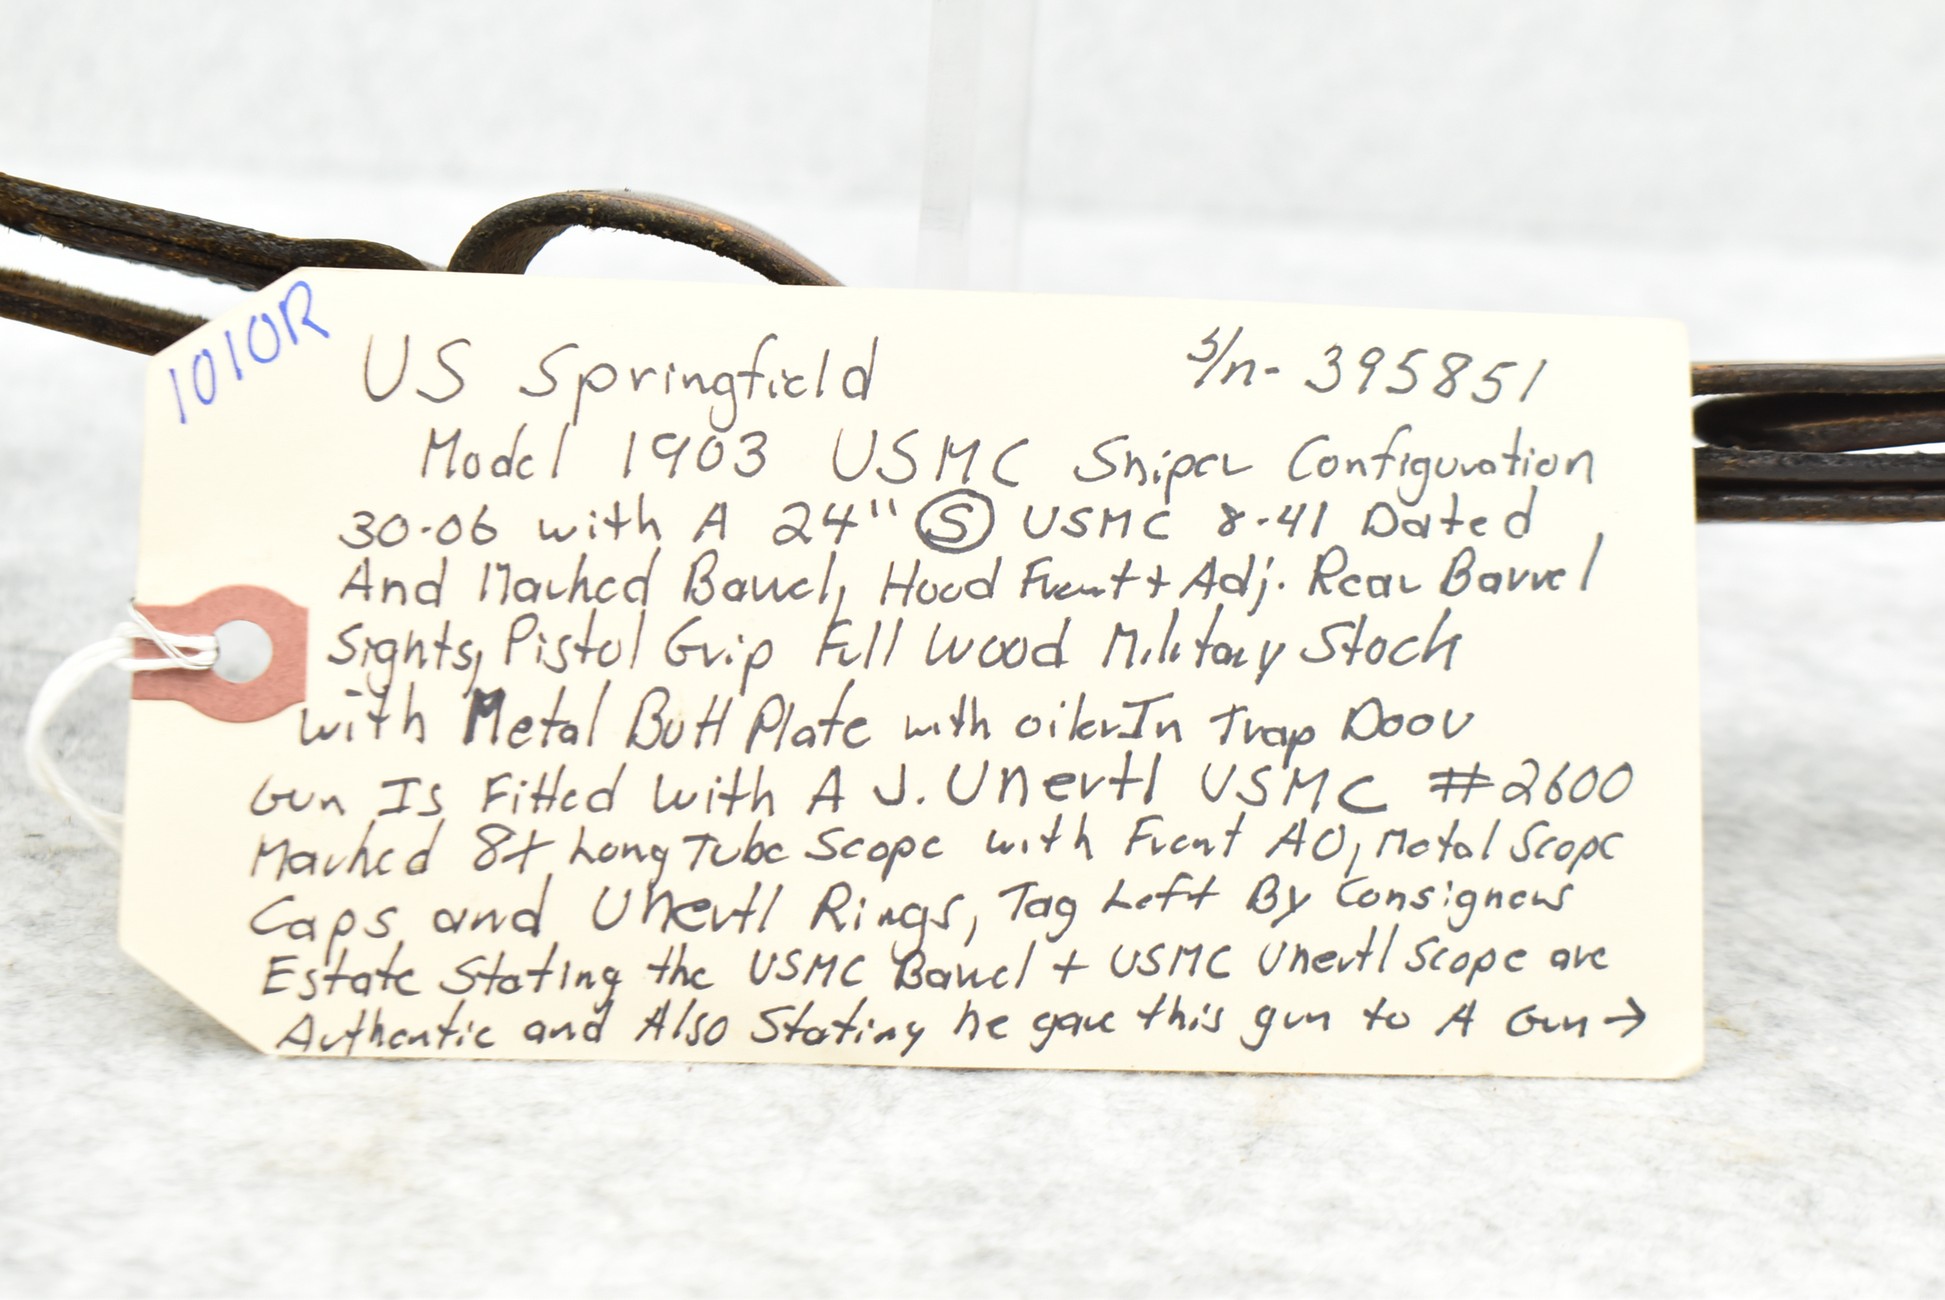 1010R
US Springfield S/n- 395851
Model 1903 USMC Sniper Configuration
30-06 with A 24" Ⓢ USMC 8-41 Dated
And Marked Barrel, Hood Front + Adj. Rear Barrel
Sights, Pistol Grip Full Wood Military Stock
with Metal Butt Plate with oiler In Trap Door
Gun Is Fitted with A J. Unertl USMC #2600
Marked 8X Long Tube Scope with Front AO, Metal Scope
Caps and Unertl Rings, Tag Left By Consignors
Estate Stating the USMC Barrel + USMC Unertl Scope are
Authentic and Also Stating he gave this gun to A Gun →